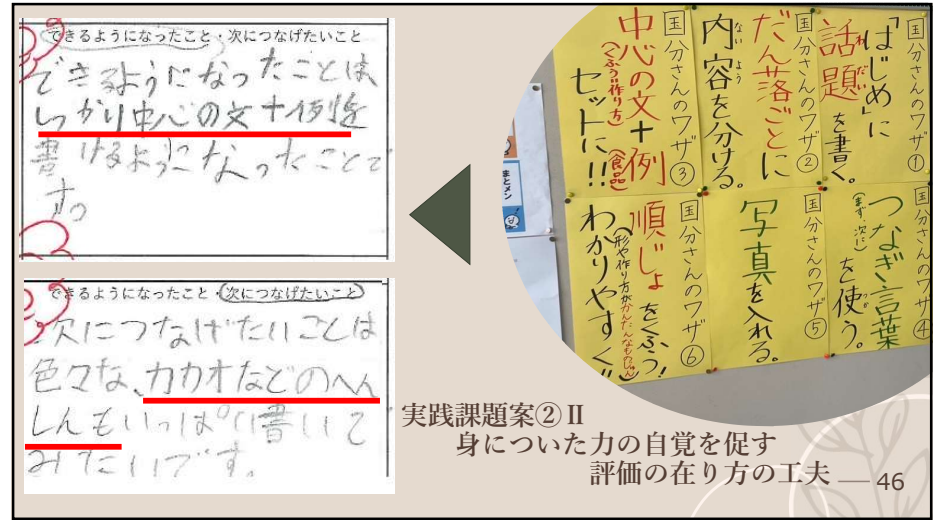 できるようになったこと・次につなげたいこと
できるようになったことは
しっかり中心の文+例を
書けるようになったことで
す。
できるようになったこと・次につなげたいこと
次につなげたいことは
色々な、カカオなどのへん
しんもいっぱい書いて
みたいです。
国分さんのワザ①
「はじめ」に
話題を書く。
わだい
国分さんのワザ②
だん落ごとに
内容を分ける。
ないよう
国分さんのワザ③
中心の文+例
(くふう・作り方)(食品)
セットに!!
国分さんのワザ④
つなぎ言葉
(まず、次に)を使う。
国分さんのワザ⑤
写真を入れる。
国分さんのワザ⑥
順じょをくふう!
わかりやすく!!
まとメン
実践課題案②Ⅱ
身についた力の自覚を促す
評価の在り方の工夫
46